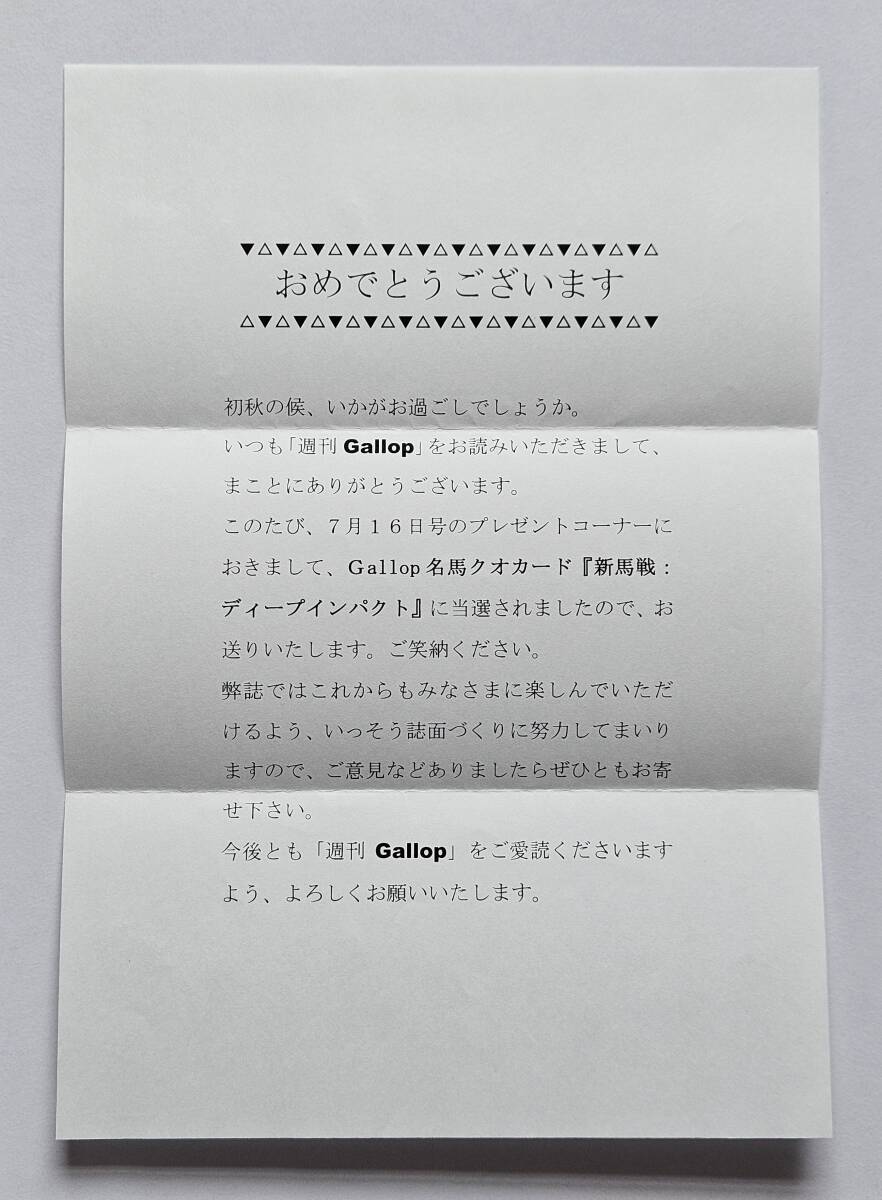 ▼△▼△▼△▼△▼△▼△▼△▼△▼△▼△▼△▼△
おめでとうございます
△▼△▼△▼△▼△▼△▼△▼△▼△▼△▼△▼△▼
初秋の候、いかがお過ごしでしょうか。
いつも「週刊 Gallop」をお読みいただきまして、
まことにありがとうございます。
このたび、７月１６日号のプレゼントコーナーに
おきまして、Gallop 名馬クオカード『新馬戦：
ディープインパクト』に当選されましたので、お
送りいたします。ご笑納ください。
弊誌ではこれからもみなさまに楽しんでいただ
けるよう、いっそう誌面づくりに努力してまいり
ますので、ご意見などありましたらぜひともお寄
せ下さい。
今後とも「週刊 Gallop」をご愛読くださいます
よう、よろしくお願いいたします。